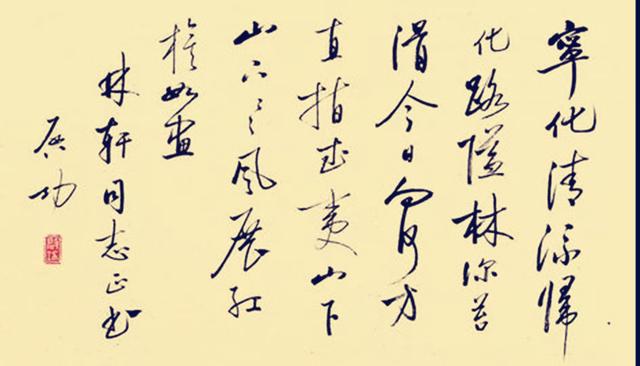 寧化清流歸
化路隘林深苔
滑今日向何方
直指武夷山下
山下山下風展紅
旗如畫
林軒同志正書
启功